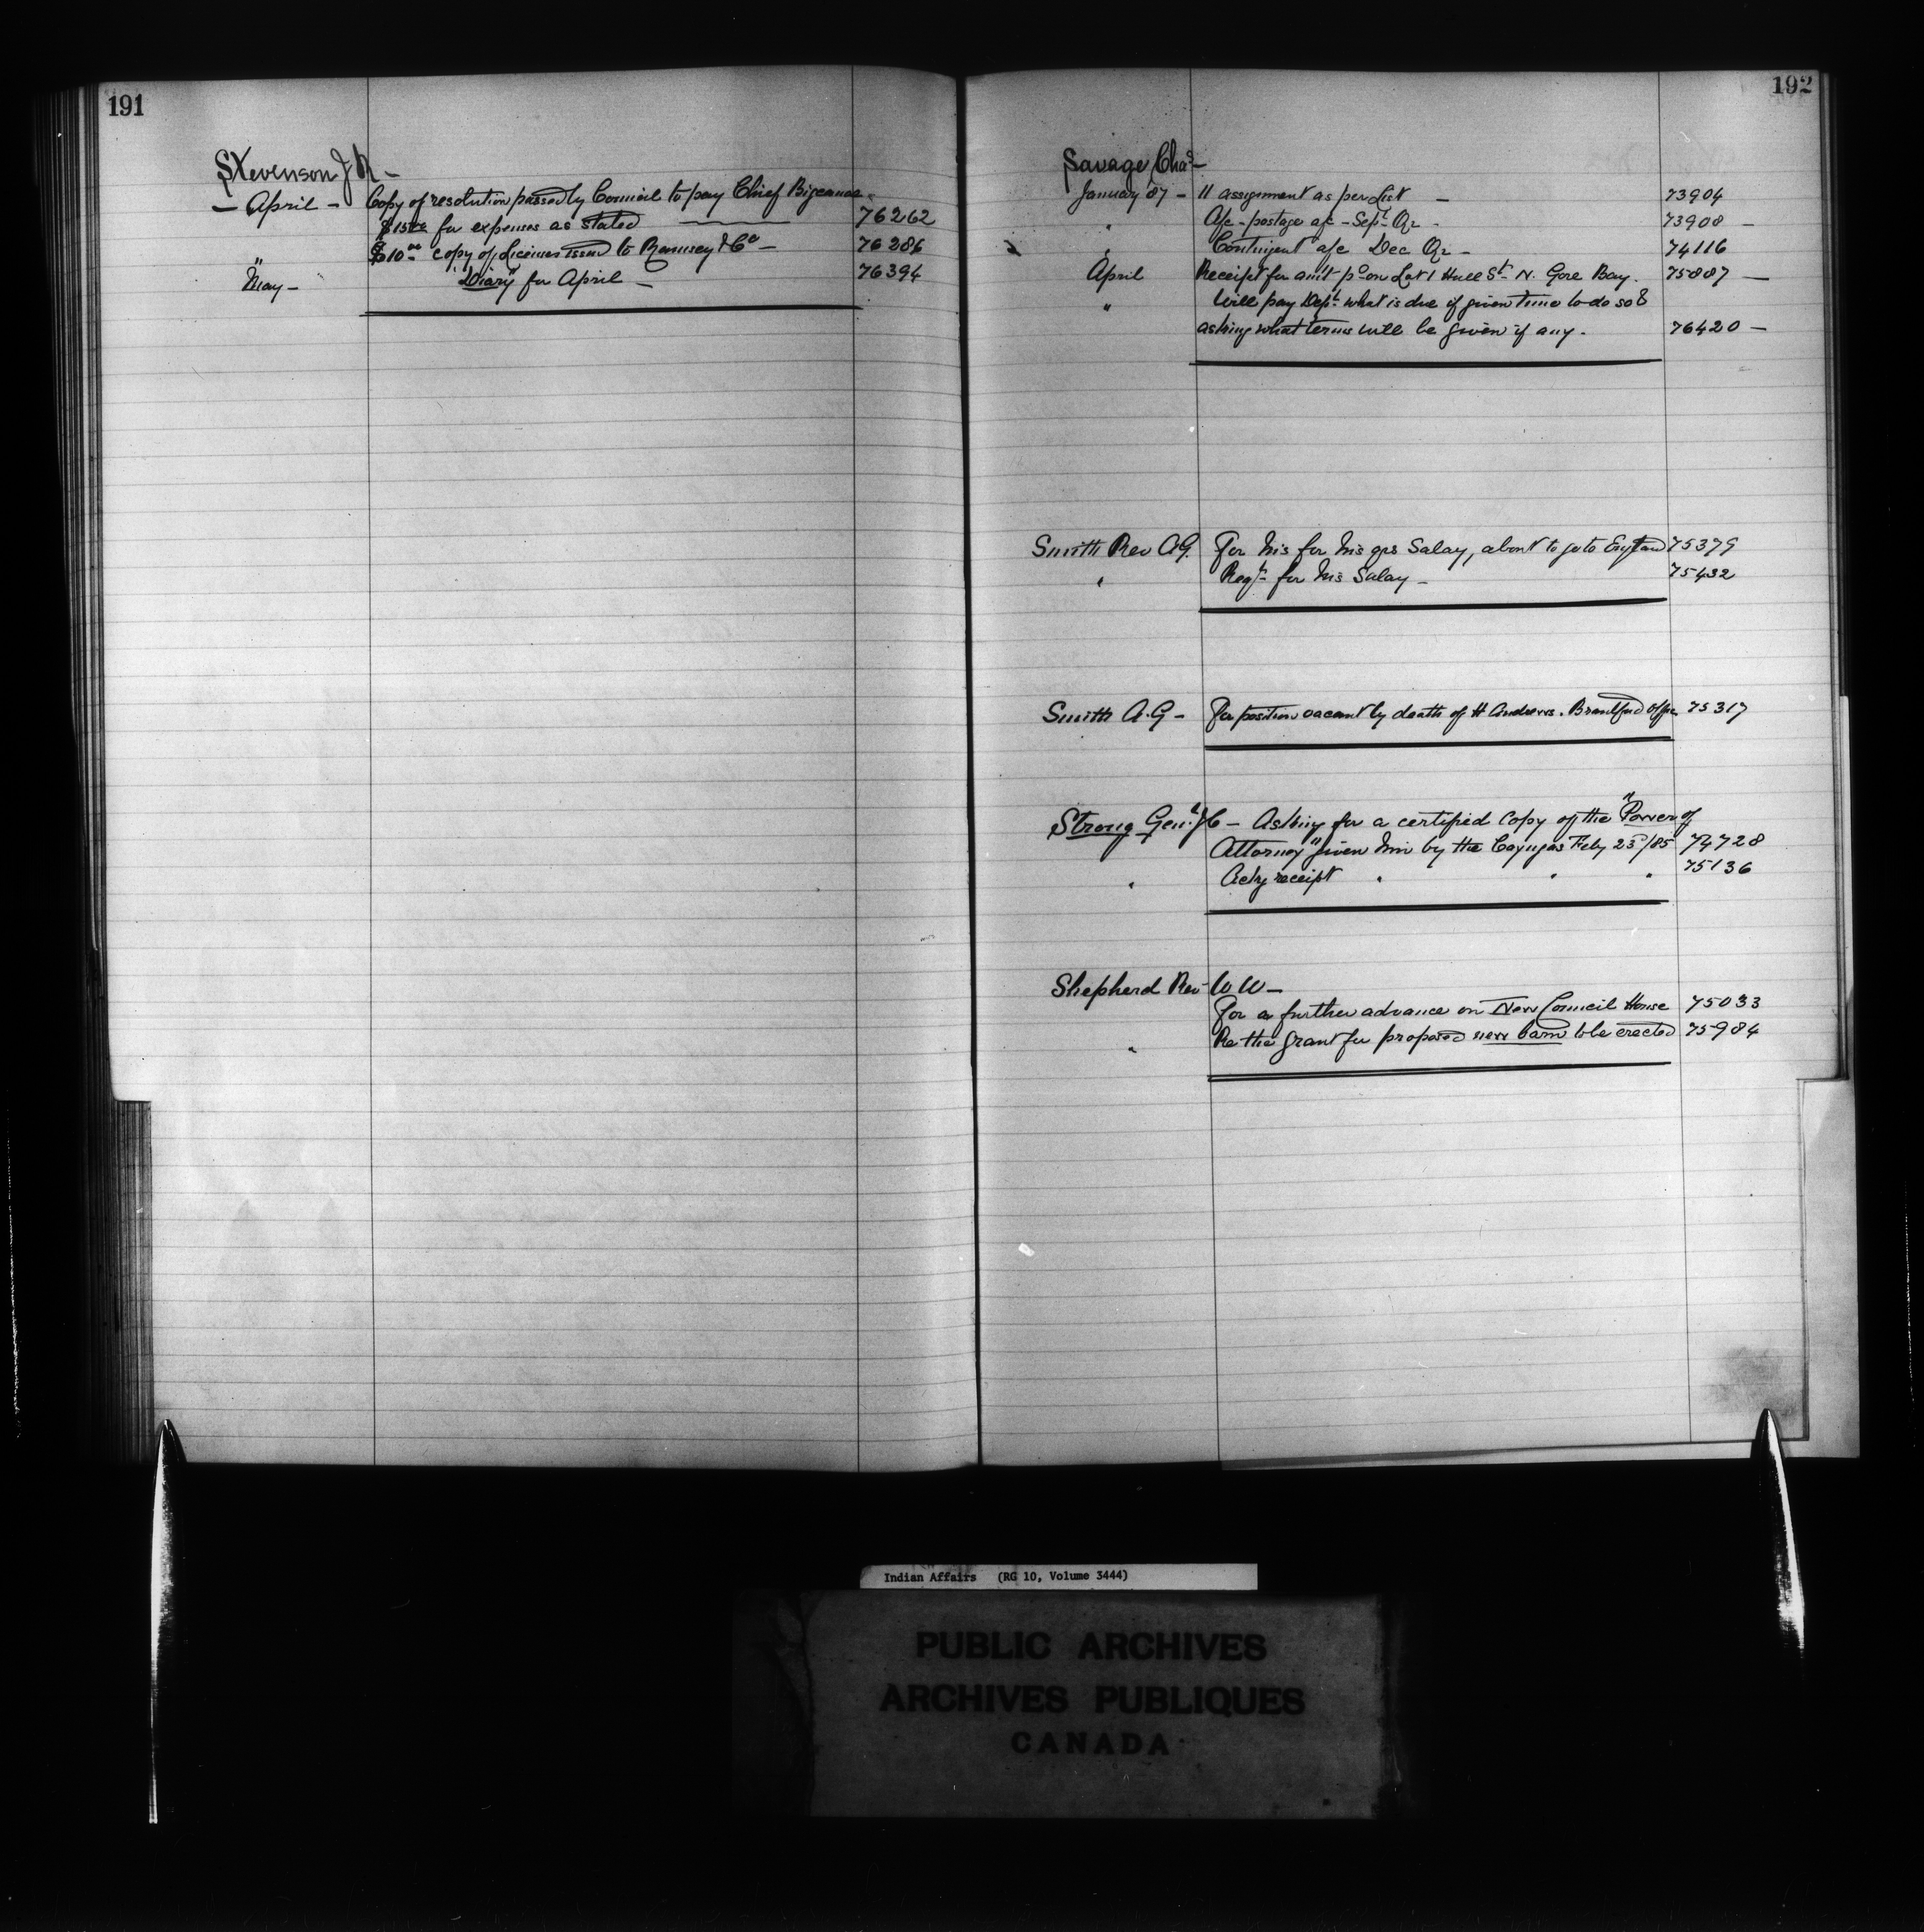 191
Stevenson J R —
— April — Copy of resolution passed by Council to pay Chief
$15.00 for expenses as stated — 76262
" $10.00 copy of licenses issued to Ramsey & Co — 76286
May — "Diary" for April — 76394
192
Savage Chas —
January '87 — 11 assignment as per List — 73904
" A/c - postage a/c - Sept Qr - 73908 —
" Contingent a/c Dec Qr - 74116
April Receipt for am't pd on Lot 1 Hull St N. Gore Bay. 75887 —
" Will pay Dept what is due if given time to do so &
asking what terms will be given if any. 76420 —
Smith Rev A.G. For his for his qrs Salary, about to go to England 75379
" Reqt for his Salary — 75432
Smith A.G — For position vacant by death of H Andrews. Brantford Office 75317
Strong Genl J C — Asking for a certified copy of the "Power of
Attorney" given him by the Cayugas Feby 25/85 74728
" Ackg receipt " " " 75136
Shepherd Rev W W —
For a further advance on New Council House 75033
" Re the grant for proposed new barn to be erected 75984
Indian Affairs (RG 10, Volume 3444)
PUBLIC ARCHIVES
ARCHIVES PUBLIQUES
CANADA